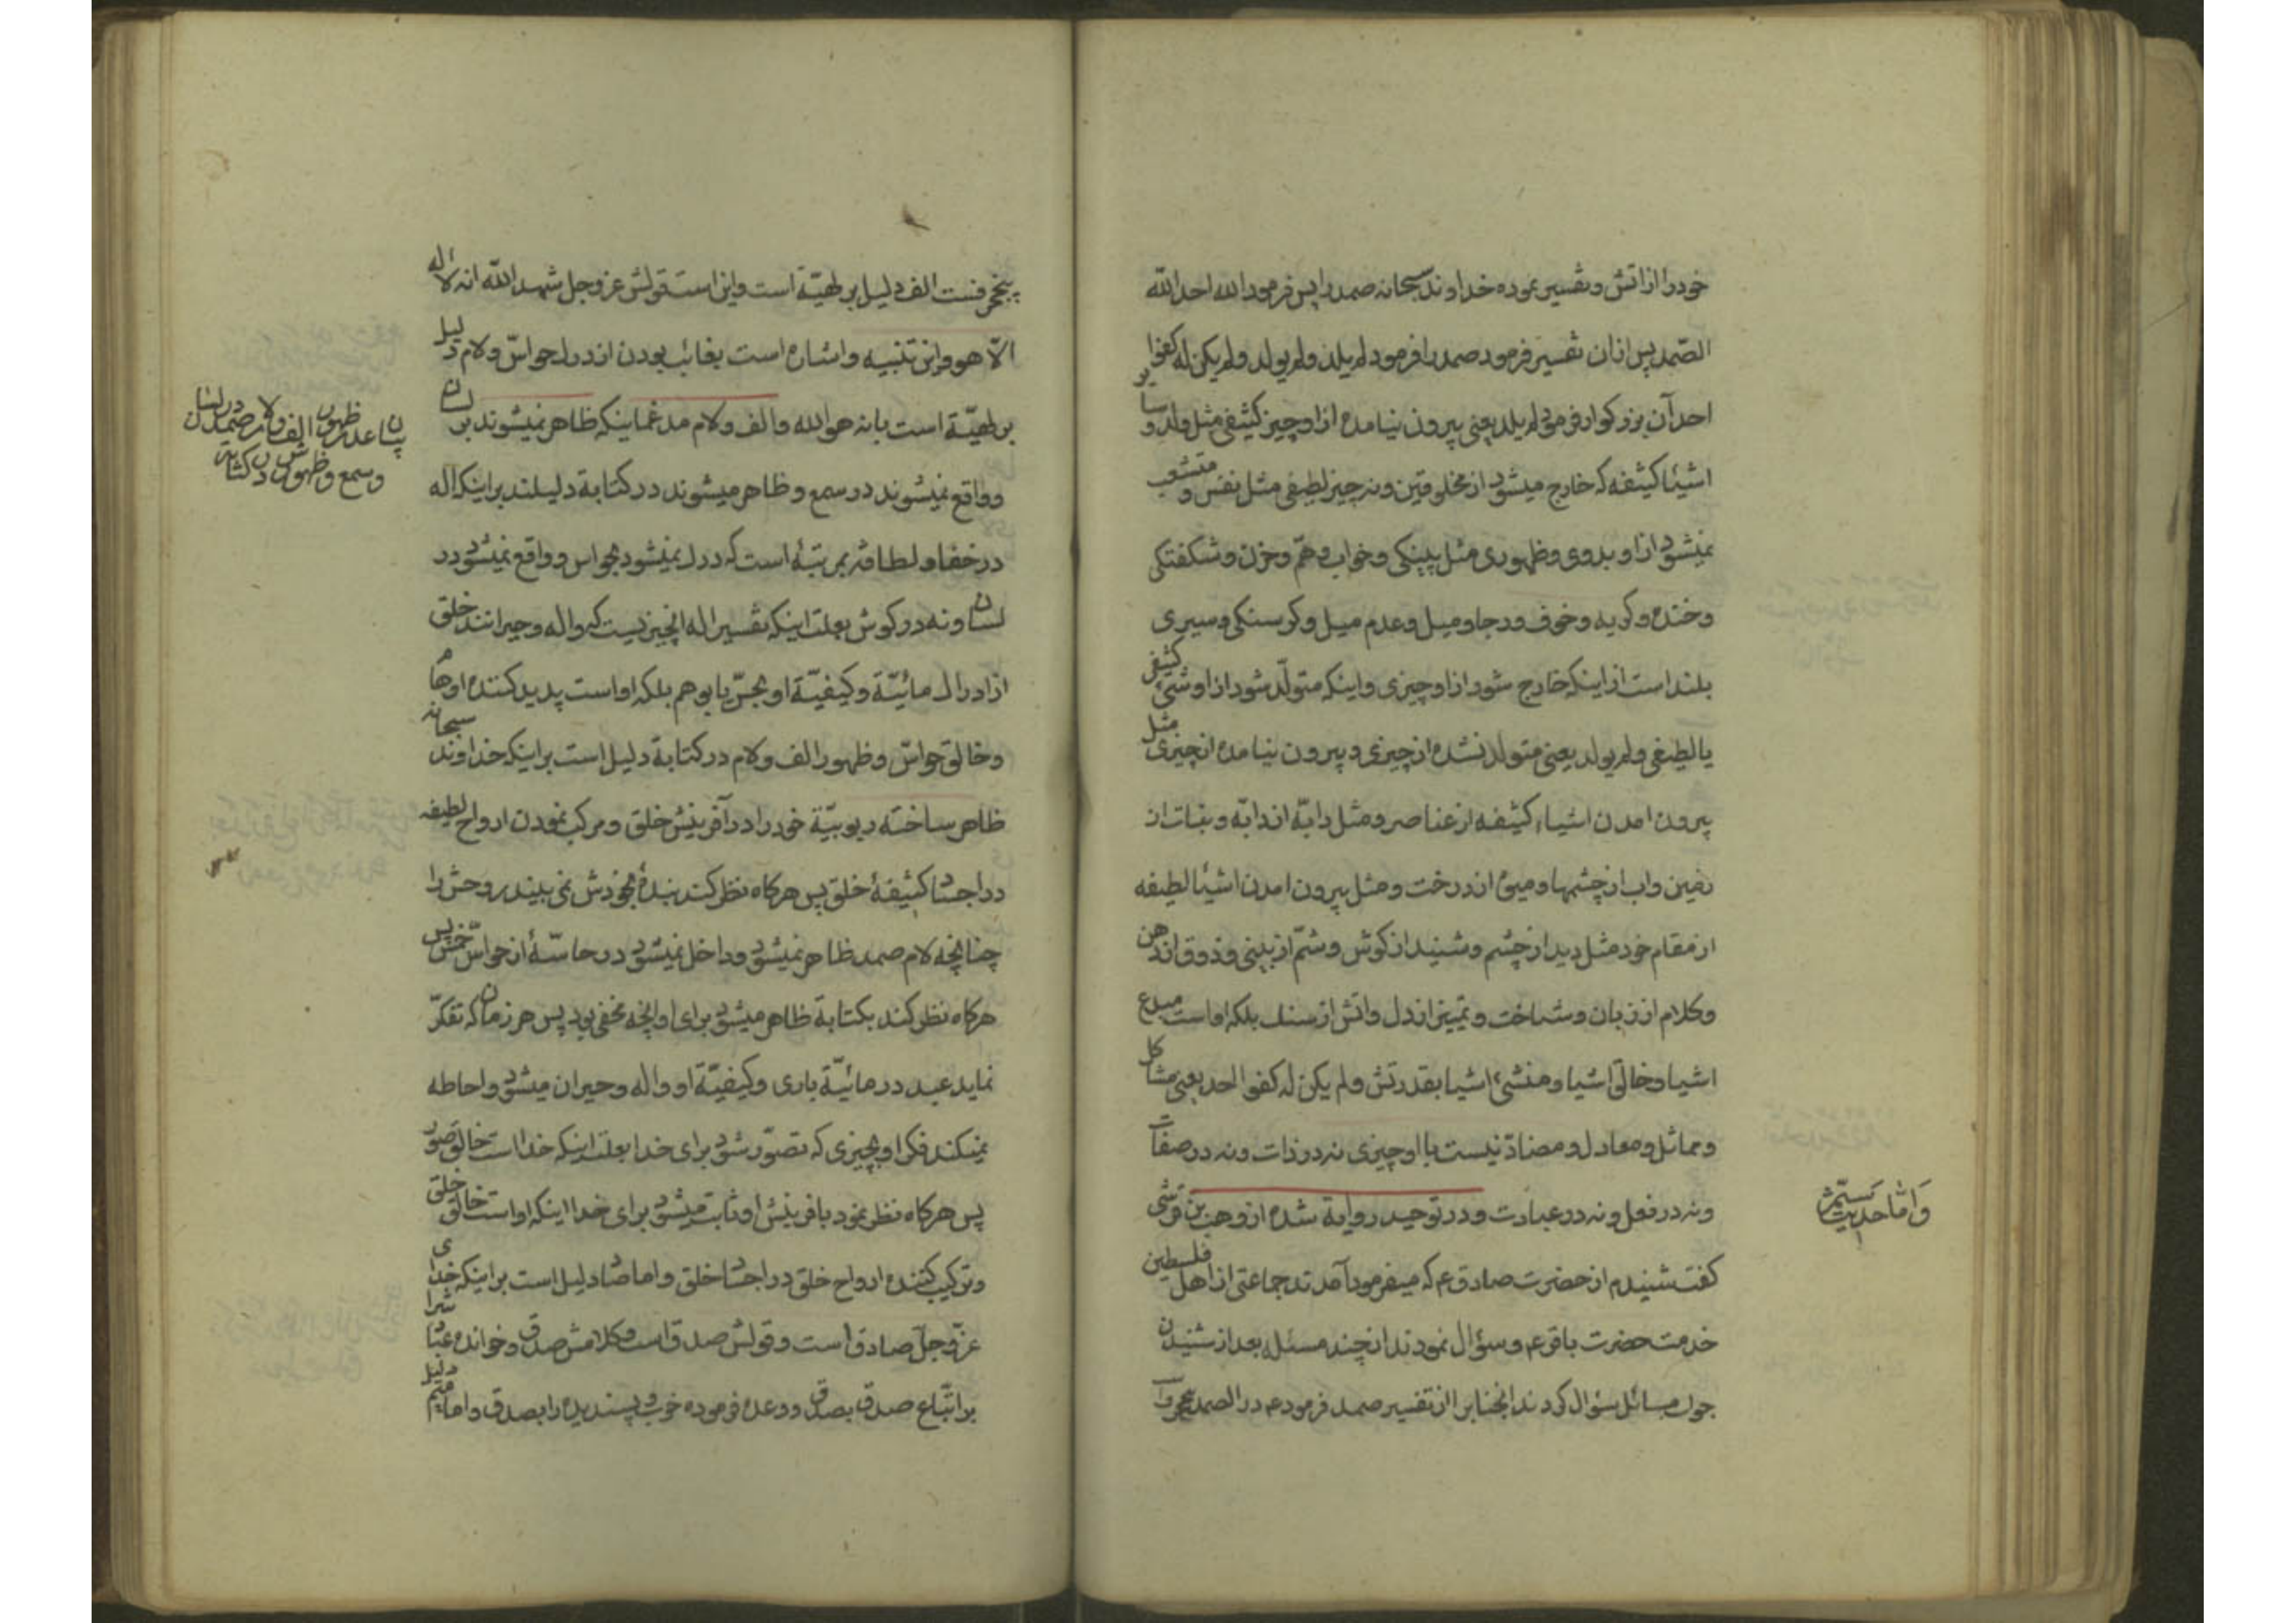 خود را از اتش و تفسیر نموده خداوند سبحانه صمد را پس فرمود الله احد الله
الصّمد پس از ان تفسیر فرمود صمد را فرمود لم یلد ولم یولد ولم یکن له کفوا
احد آن بزرکوار فرمود لم یلد یعنی بیرون نیامده از او چیز کثیفی مثل ولد و سایر
اشیئا کثیفه که خارج میشود از مخلوقین و نه چیز لطیفی مثل نفس و متشعب
نمیشود از او بدوی و ظهوری مثل پینکی و خواب و همّ و حزن و شکفتکی
و خنده و کریه و خوف و رجا و میل و عدم میل و کرسنکی و سیری
بلند است از اینکه خارج شود از او چیزی و اینکه متولّد شود از او شئ کثیفی
یا لطیفی ولم یولد یعنی متولد نشده از چیزی و بیرون نیامده از چیزی مثل
بیرون امدن اشیاء کثیفه از عناصر و مثل دابّه از دابّه و نبات از
زمین و اب از چشمها و میوه از درخت و مثل بیرون امدن اشیئا لطیفه
از مقام خود مثل دید از چشم و شنید از کوش و شمّ از بینی و ذوق از دهن
و کلام از زبان و شناخت و تمییز از دل و اتش از سنک بلکه او است مبدع
اشیا و خالق اشیا و منشئ اشیا بقدرتش و لم یکن له کفوا احد یعنی مشاکل
و مماثل و معادل و مضادّ نیست با او چیزی نه در ذات و نه در صفات
و نه در فعل و نه در عبادت و در توحید روایة شده از وهب بن قرشی
کفت شنیدم از حضرت صادق ع که میفرمود آمدند جماعتی از اهل فلسطین
خدمت حضرت باقر ع و سؤال نمودند از چند مسئله بعد از شنیدن
جواب مسائل سؤال کردند انجناب را از تفسیر صمد فرمود ع در الصمد
وَامّا حدیث
پنج حرفست الف دلیل بر انّیّة است و این است قولش عز و جل شهد الله انه لا اله
الّا هو و این تنبیه و اشاره است بغائب بودن از درک حواسّ و لام دلیل
بر الهیّة است بانه هو الله و الف و لام مدغما اینکه ظاهر نمیشوند بر لسان
و واقع نمیشوند در سمع و ظاهر میشوند در کتابة دلیلند بر اینکه اله
در خفا و لطافة بمرتبۀ است که درک نمیشود بحواس و واقع نمیشود در
لسان و نه در کوش بعلت اینکه تفسیر اله انچیز نیست که واله و حیرانند خلق
از ادراک مائیّة و کیفیّة او بحسّ یا بوهم بلکه او است پدید کننده اوهام
و خالق حواسّ و ظهور الف و لام در کتابة دلیل است بر اینکه خداوند سبحانه
ظاهر ساخته ربوبیّة خود را در آفرینش خلق و مرکب نمودن ارواح لطیفه
در اجساد کثیفۀ خلق پس هرکاه نظر کند بندۀ بخودش نمی بیند روحش را
چنانچه لام صمد ظاهر نمیشود و داخل نمیشود در حاسّۀ از حواسّ خمس پس
هرکاه نظر کند بکتابة ظاهر میشود برای او انچه مخفی بود پس هر زمان که تفکّر
نماید عبد در مائیّة باری و کیفیّة او واله و حیران میشود و احاطه
نمیکند فکر او بچیزی که تصوّر شود برای خدا بعلت اینکه خدا است خالق صور
پس هرکاه نظر نمود بافرینش او ثابت میشود برای خدا اینکه او است خالق خلق
و ترکیب کننده ارواح خلق در اجساد خلق و اما صاد دلیل است بر اینکه خدای
عزّ و جلّ صادق است و قولش صدق است و کلامش صدق و خوانده عباد را
بر اتّباع صدق بصدق و وعده فرموده خوب و پسندیده را بصدق و اما میم دلیل
بیان عدم ظهور الف و لام صمد در لسان
و سمع و ظهورش در کتابة